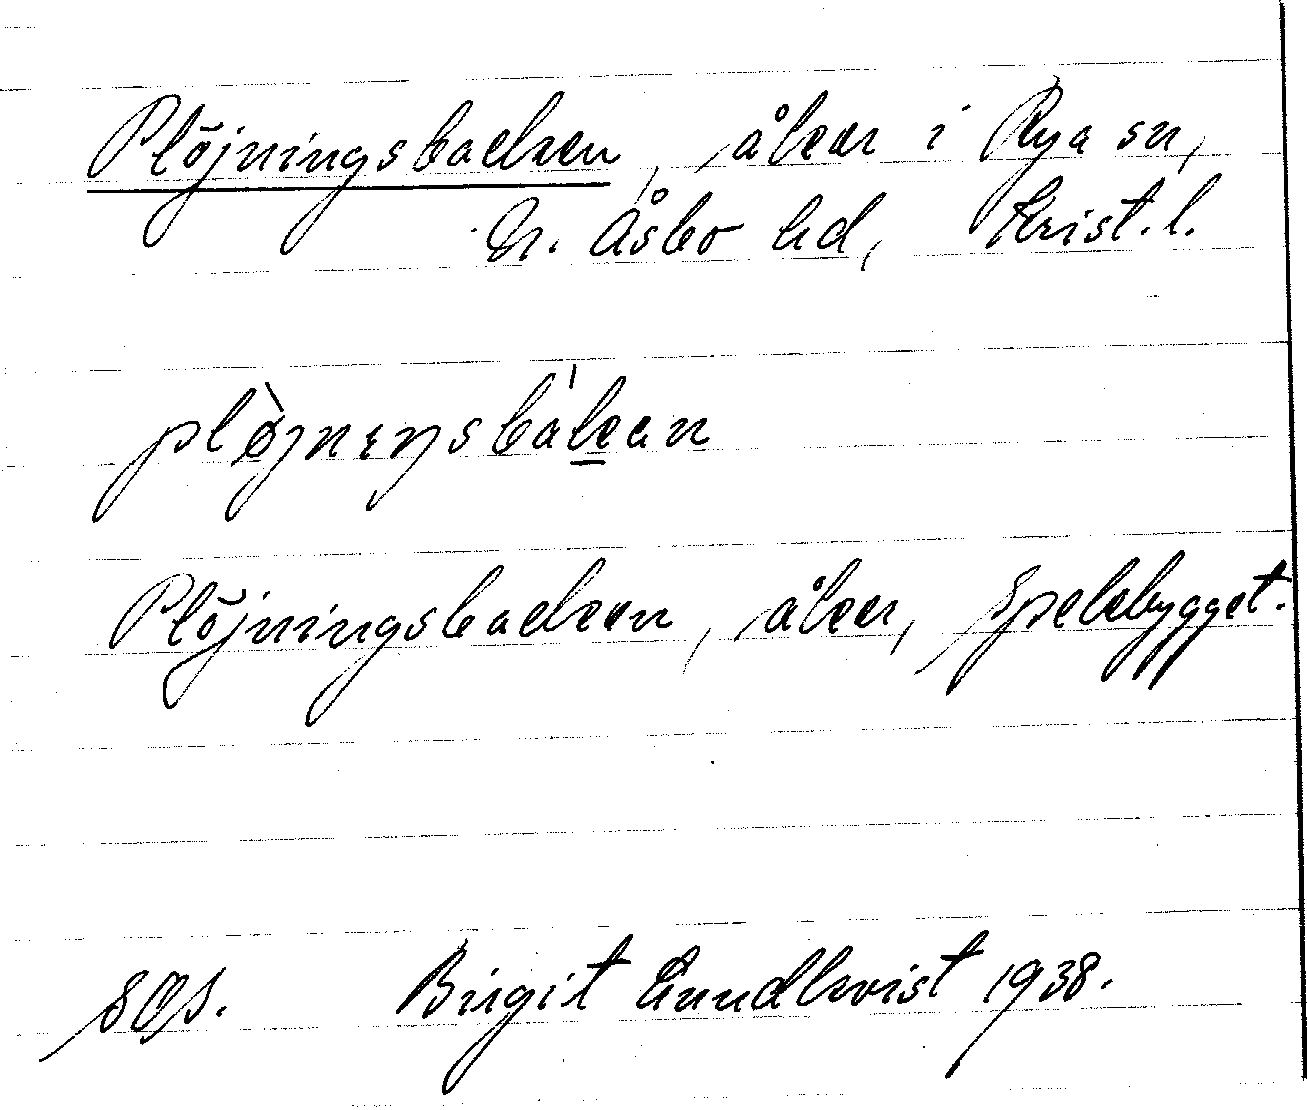 Plöjningsbacken, åker i Rya sn,
N. Åsbo hd, Krist. l.
Plöjningsbacken, åker, Spelebygget.
SOS. Birgit Lundkvist 1938.